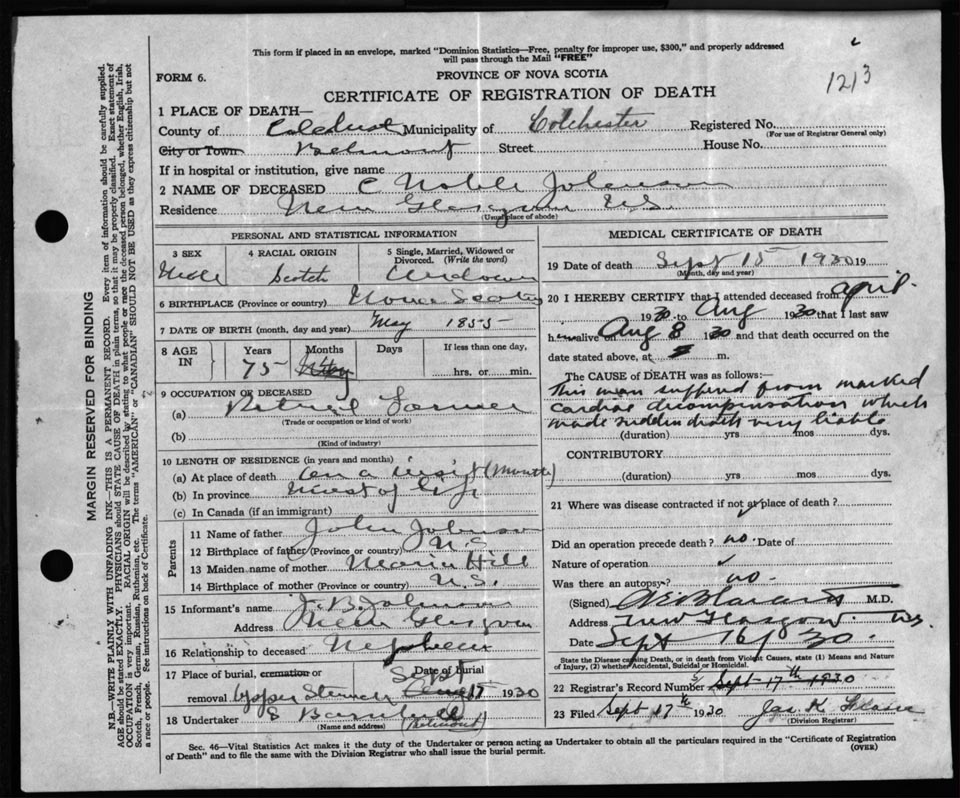 This form if placed in an envelope, marked "Dominion Statistics—Free, penalty for improper use, $300," and properly addressed
will pass through the Mail "FREE"
FORM 6.
PROVINCE OF NOVA SCOTIA
1213
CERTIFICATE OF REGISTRATION OF DEATH
1 PLACE OF DEATH—
County of Colchest Municipality of Colchester Registered No.
(For use of Registrar General only)
City or Town Belmont Street House No.
If in hospital or institution, give name
2 NAME OF DECEASED C Noble Johnson
Residence New Glasgow N.S.
(Usual place of abode)
PERSONAL AND STATISTICAL INFORMATION
3 SEX 4 RACIAL ORIGIN 5 Single, Married, Widowed or
Divorced. (Write the word)
Male Scotch Widower
6 BIRTHPLACE (Province or country) Nova Scotia
7 DATE OF BIRTH (month, day and year) May 1855
8 AGE IN Years Months Days If less than one day,
75 hrs. or min.
9 OCCUPATION OF DECEASED
(a) Retired Farmer
(Trade or occupation or kind of work)
(b)
(Kind of industry)
10 LENGTH OF RESIDENCE (in years and months)
(a) At place of death on a visit (Month)
(b) In province most of life
(c) In Canada (if an immigrant)
Parents
11 Name of father John Johnson
12 Birthplace of father (Province or country) N.S.
13 Maiden name of mother Maria Hill
14 Birthplace of mother (Province or country) N.S.
15 Informant's name J. B. Johnson
Address New Glasgow
16 Relationship to deceased Nephew
17 Place of burial, cremation or Date of burial
removal Upper Stewiacke Sept 17 1930
18 Undertaker S
(Name and address) (Belmont)
MEDICAL CERTIFICATE OF DEATH
19 Date of death Sept 15 1930 19
(Month, day and year)
20 I HEREBY CERTIFY that I attended deceased from April
1930 to Aug 1930 that I last saw
h alive on Aug 8 1930 and that death occurred on the
date stated above, at m.
The CAUSE of DEATH was as follows:—
This man suffered from marked
cardiac decompensation which
made sudden death very liable
(duration) yrs mos dys.
CONTRIBUTORY
(duration) yrs mos dys.
21 Where was disease contracted if not at place of death?
Did an operation precede death? no. Date of
Nature of operation
Was there an autopsy? no.
(Signed) M.D.
Address New Glasgow N.S.
Date Sept 16/30.
State the Disease causing Death, or in death from Violent Causes, state (1) Means and Nature
of Injury, (2) whether Accidental, Suicidal or Homicidal.
22 Registrar's Record Number 5/ Sept 17th 1930
23 Filed Sept 17th 1930 Jas. K. Fraser
(Division Registrar)
Sec. 46—Vital Statistics Act makes it the duty of the Undertaker or person acting as Undertaker to obtain all the particulars required in the "Certificate of Registration
of Death" and to file the same with the Division Registrar who shall issue the burial permit. (OVER)
MARGIN RESERVED FOR BINDING
N.B.—WRITE PLAINLY WITH UNFADING INK—THIS IS A PERMANENT RECORD. Every item of information should be carefully supplied.
AGE should be stated EXACTLY. PHYSICIANS should STATE CAUSE OF DEATH in plain terms, so that it may be properly classified. Exact statement of
OCCUPATION is very important. RACIAL ORIGIN will be described by stating to what people or race the deceased person belonged, whether English, Irish,
Scotch, French, German, Russian, Ruthenian, etc. The terms "AMERICAN" or "CANADIAN" SHOULD NOT BE USED as they express citizenship but not
a race or people. See instructions on back of Certificate.